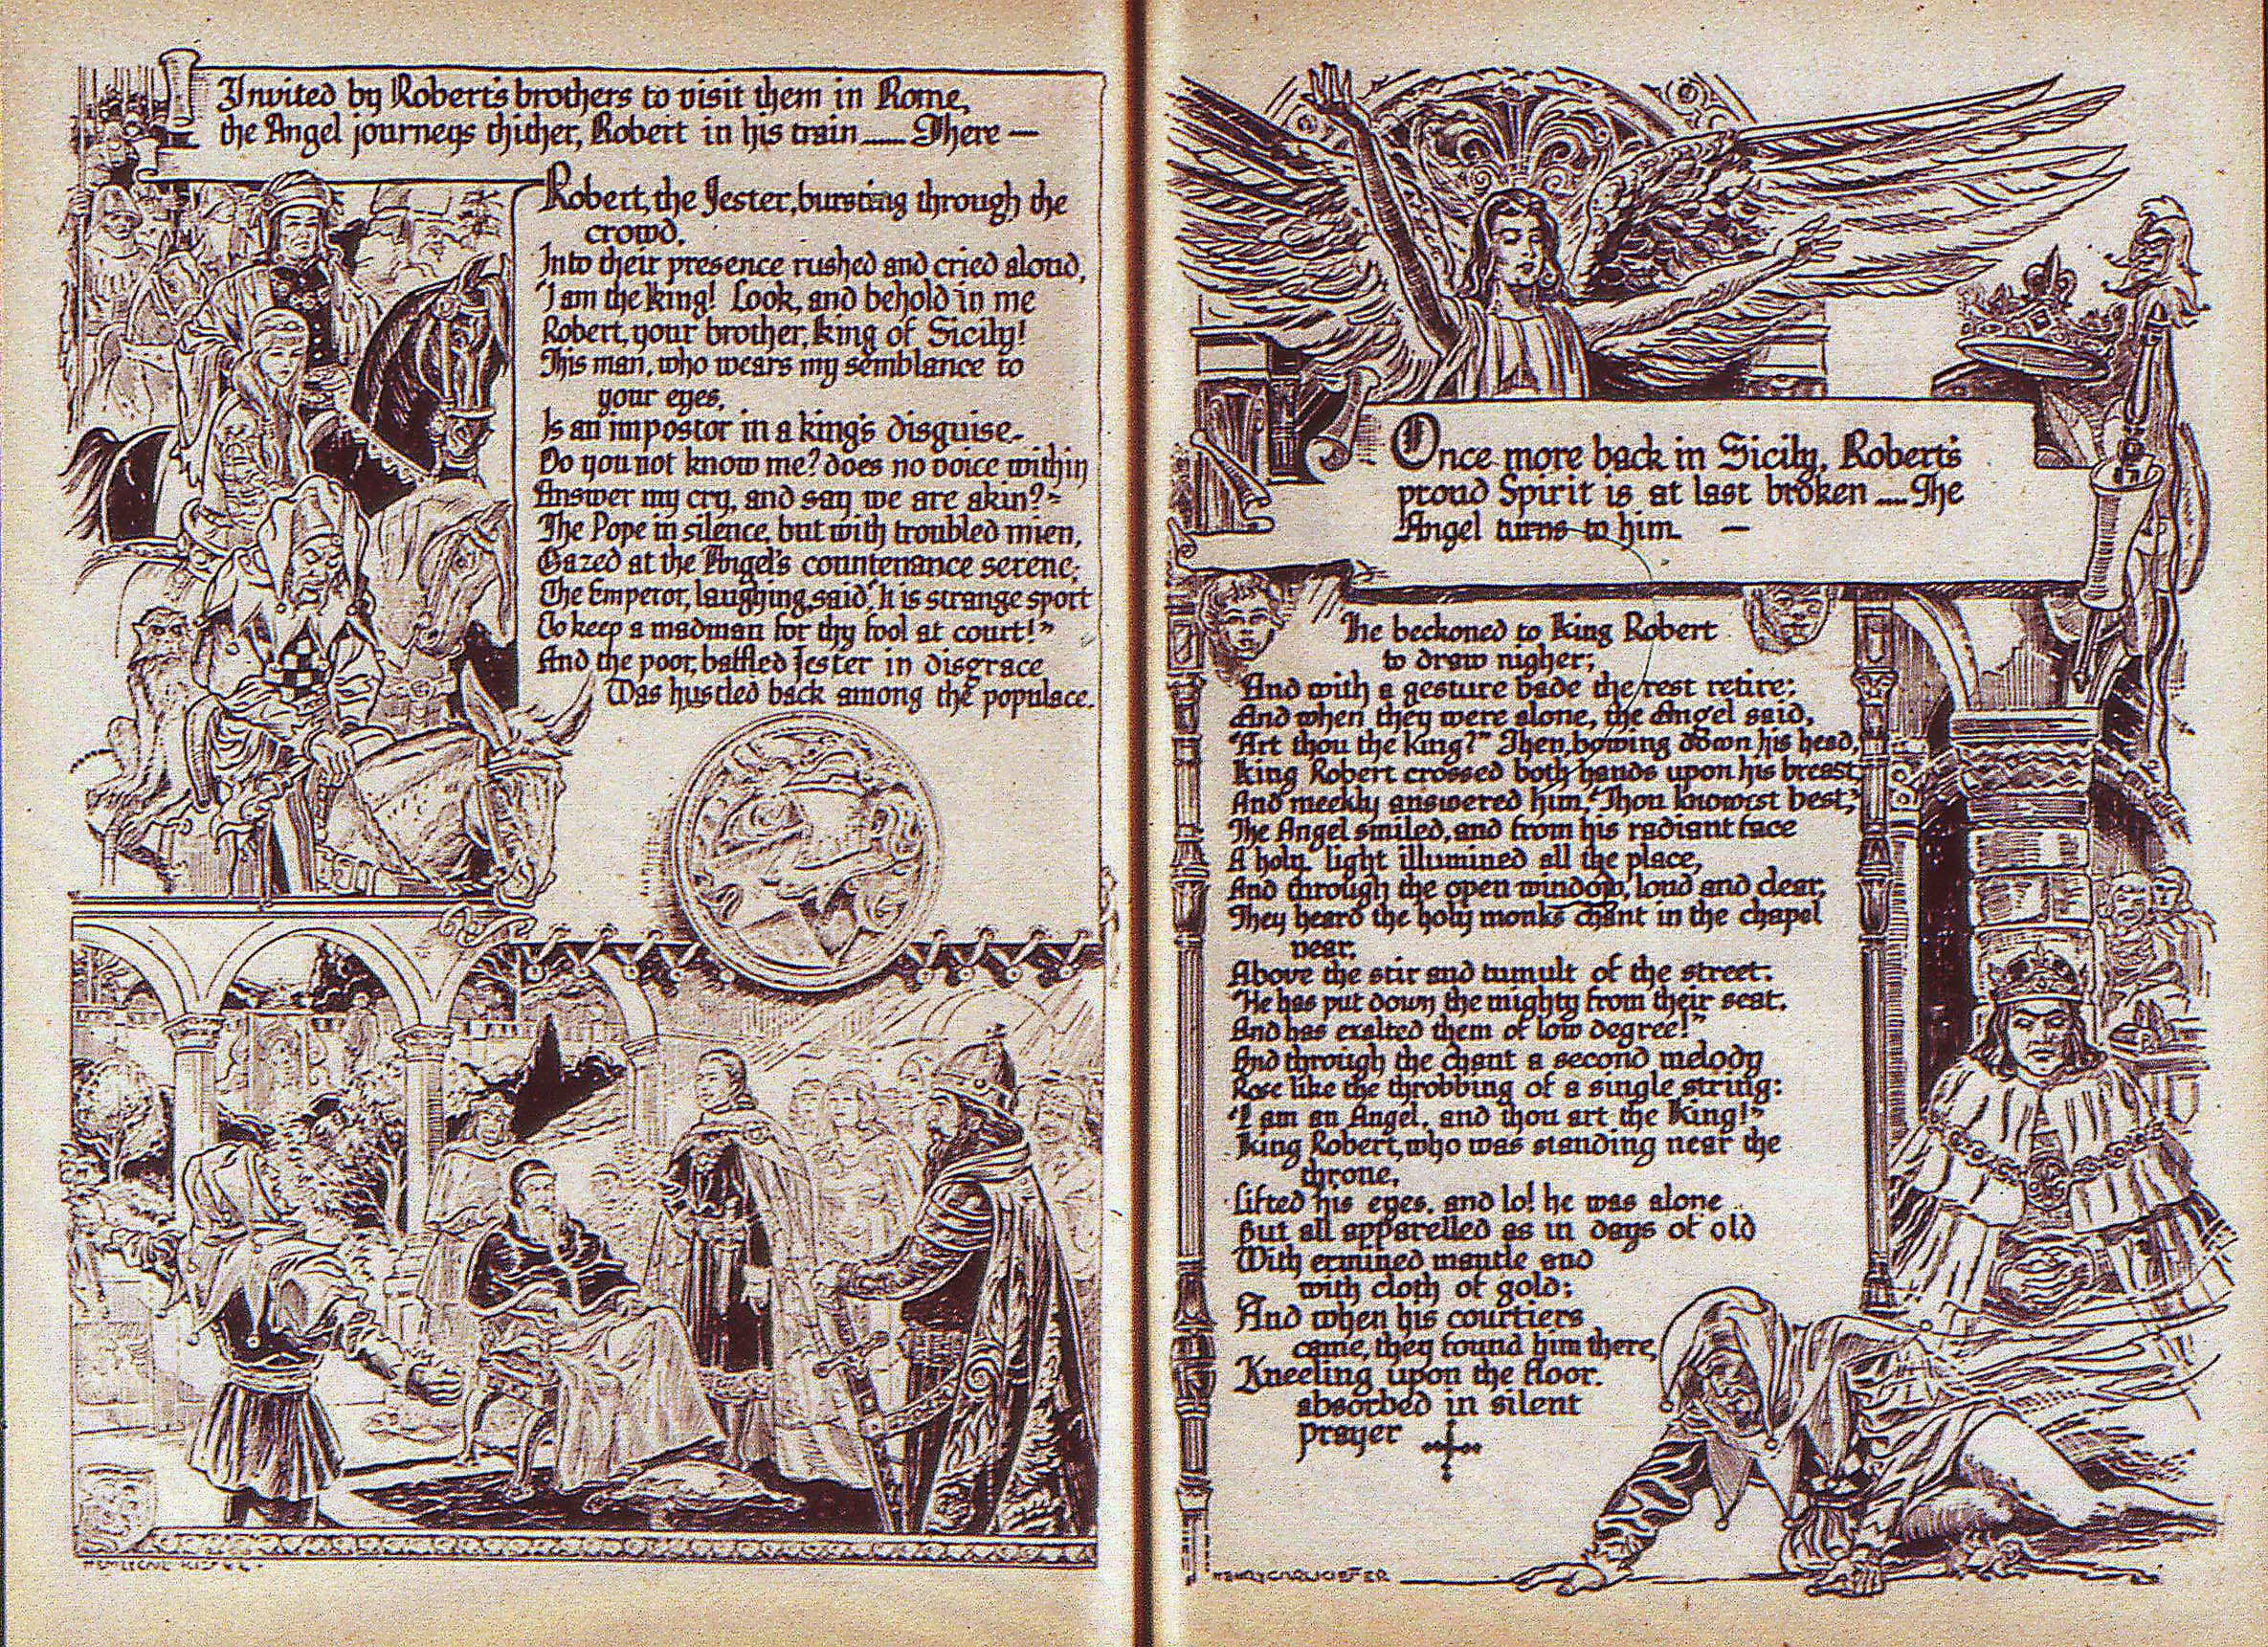 Invited by Robert's brothers to visit them in Rome,
the Angel journeys thither, Robert in his train ..... There —
Robert, the Jester, bursting through the
crowd,
Into their presence rushed and cried aloud,
"I am the king! Look, and behold in me
Robert, your brother, king of Sicily!
This man, who wears my semblance to
your eyes,
Is an impostor in a king's disguise.
Do you not know me? does no voice within
Answer my cry, and say we are akin?"
The Pope in silence, but with troubled mien,
Gazed at the Angel's countenance serene;
The Emperor, laughing, said, "It is strange sport
To keep a madman for thy fool at court!"
And the poor, baffled Jester in disgrace
Was hustled back among the populace.
HENRY CARL KIEFER
Once more back in Sicily, Robert's
proud Spirit is at last broken .... The
Angel turns to him. —
He beckoned to King Robert
to draw nigher;
And with a gesture bade the rest retire;
And when they were alone, the Angel said,
"Art thou the king?" Then, bowing down his head,
King Robert crossed both hands upon his breast,
And meekly answered him, "Thou knowest best;"
The Angel smiled, and from his radiant face
A holy light illumined all the place,
And through the open window, loud and clear,
They heard the holy monks chant in the chapel
near,
Above the stir and tumult of the street:
"He has put down the mighty from their seat,
And has exalted them of low degree!"
And through the chant a second melody
Rose like the throbbing of a single string:
"I am an Angel, and thou art the King!"
King Robert, who was standing near the
throne,
Lifted his eyes, and lo! he was alone ..
But all apparelled as in days of old
With ermined mantle and
with cloth of gold;
And when his courtiers
came, they found him there,
Kneeling upon the floor,
absorbed in silent
prayer
HENRY CARL KIEFER